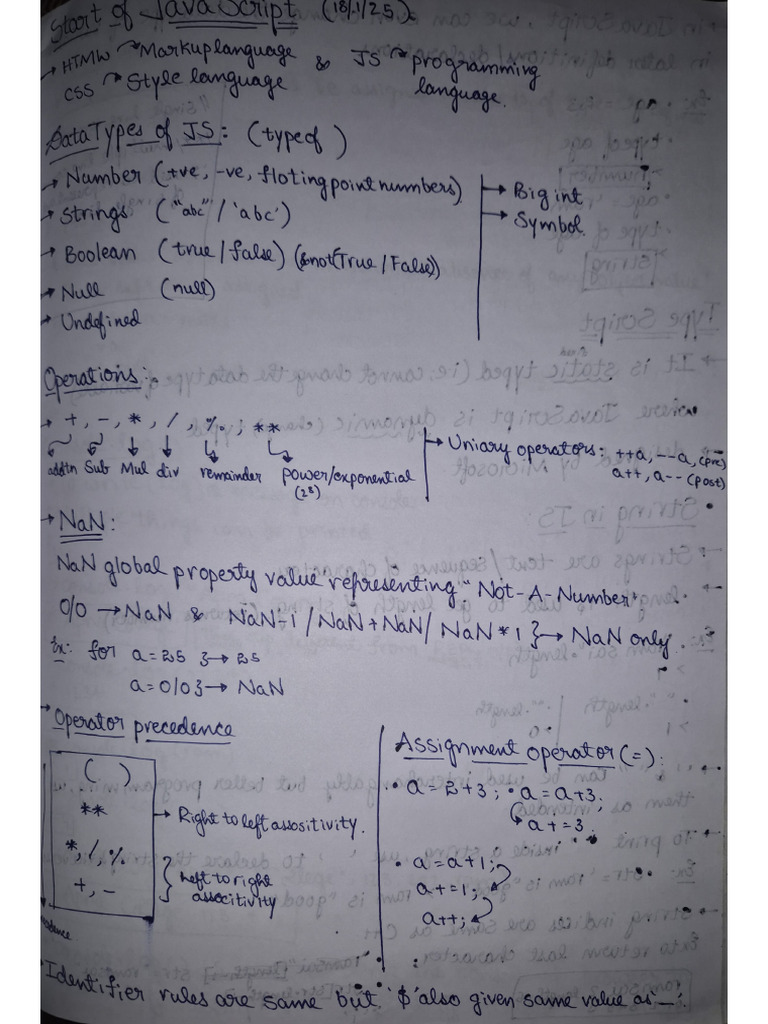 Start of JavaScript (18/1/25):
→ HTML → Markup language & JS → programming
CSS → Style language language.
Data Types of JS: (typeof)
→ Number (+ve, -ve, floting point numbers)
→ Strings ("abc" / 'abc')
→ Boolean (true/false) (&not(True/False))
→ Null (null)
→ Undefined
→ Big int
→ Symbol.
Operations:
→ +, -, *, /, %, **
addtn Sub Mul div remainder power/exponential
(2³)
→ Uniary operators: ++a, --a, (pre)
a++, a-- (post)
→ NaN:
NaN global property value representing "Not-A-Number"
0/0 → NaN & NaN-1 / NaN + NaN / NaN * 1 } → NaN only.
Ex: for a = 25 } → 25
a = 0/0 } → NaN
→ Operator precedence
( )
**
*, /, %
+, -
→ Right to left assositivity.
} Left to right
associtivity
Assignment operator (=):
• a = 2+3; • a = a+3;
a += 3;
• a = a+1;
a += 1;
a++;
• Identifier rules are same but '$' also given same value as _.